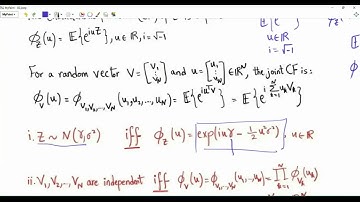 φ_Z(u) = E{e^{iuZ}}, u∈ℝ, i=√-1
i=√-1
For a random vector V = [V_1 ⋮ V_N] and u = [u_1 ⋮ u_N] ∈ℝ^N, the joint CF is:
φ_V(u) = φ_{V_1,V_2,...,V_N}(u_1,u_2,...,u_N) = E{e^{iu^T V}} = E{e^{i Σ_{k=1}^{N} u_k V_k}}
i. Z ~ N(γ,σ²) iff φ_Z(u) = exp(iuγ - ½u²σ²), u∈ℝ
ii. V_1, V_2,..., V_N are independent iff φ_V(u) = φ_{V_1,...,V_N}(u_1,...,u_N) = ∏_{k=1}^{N} φ_{V_k}(u_k)